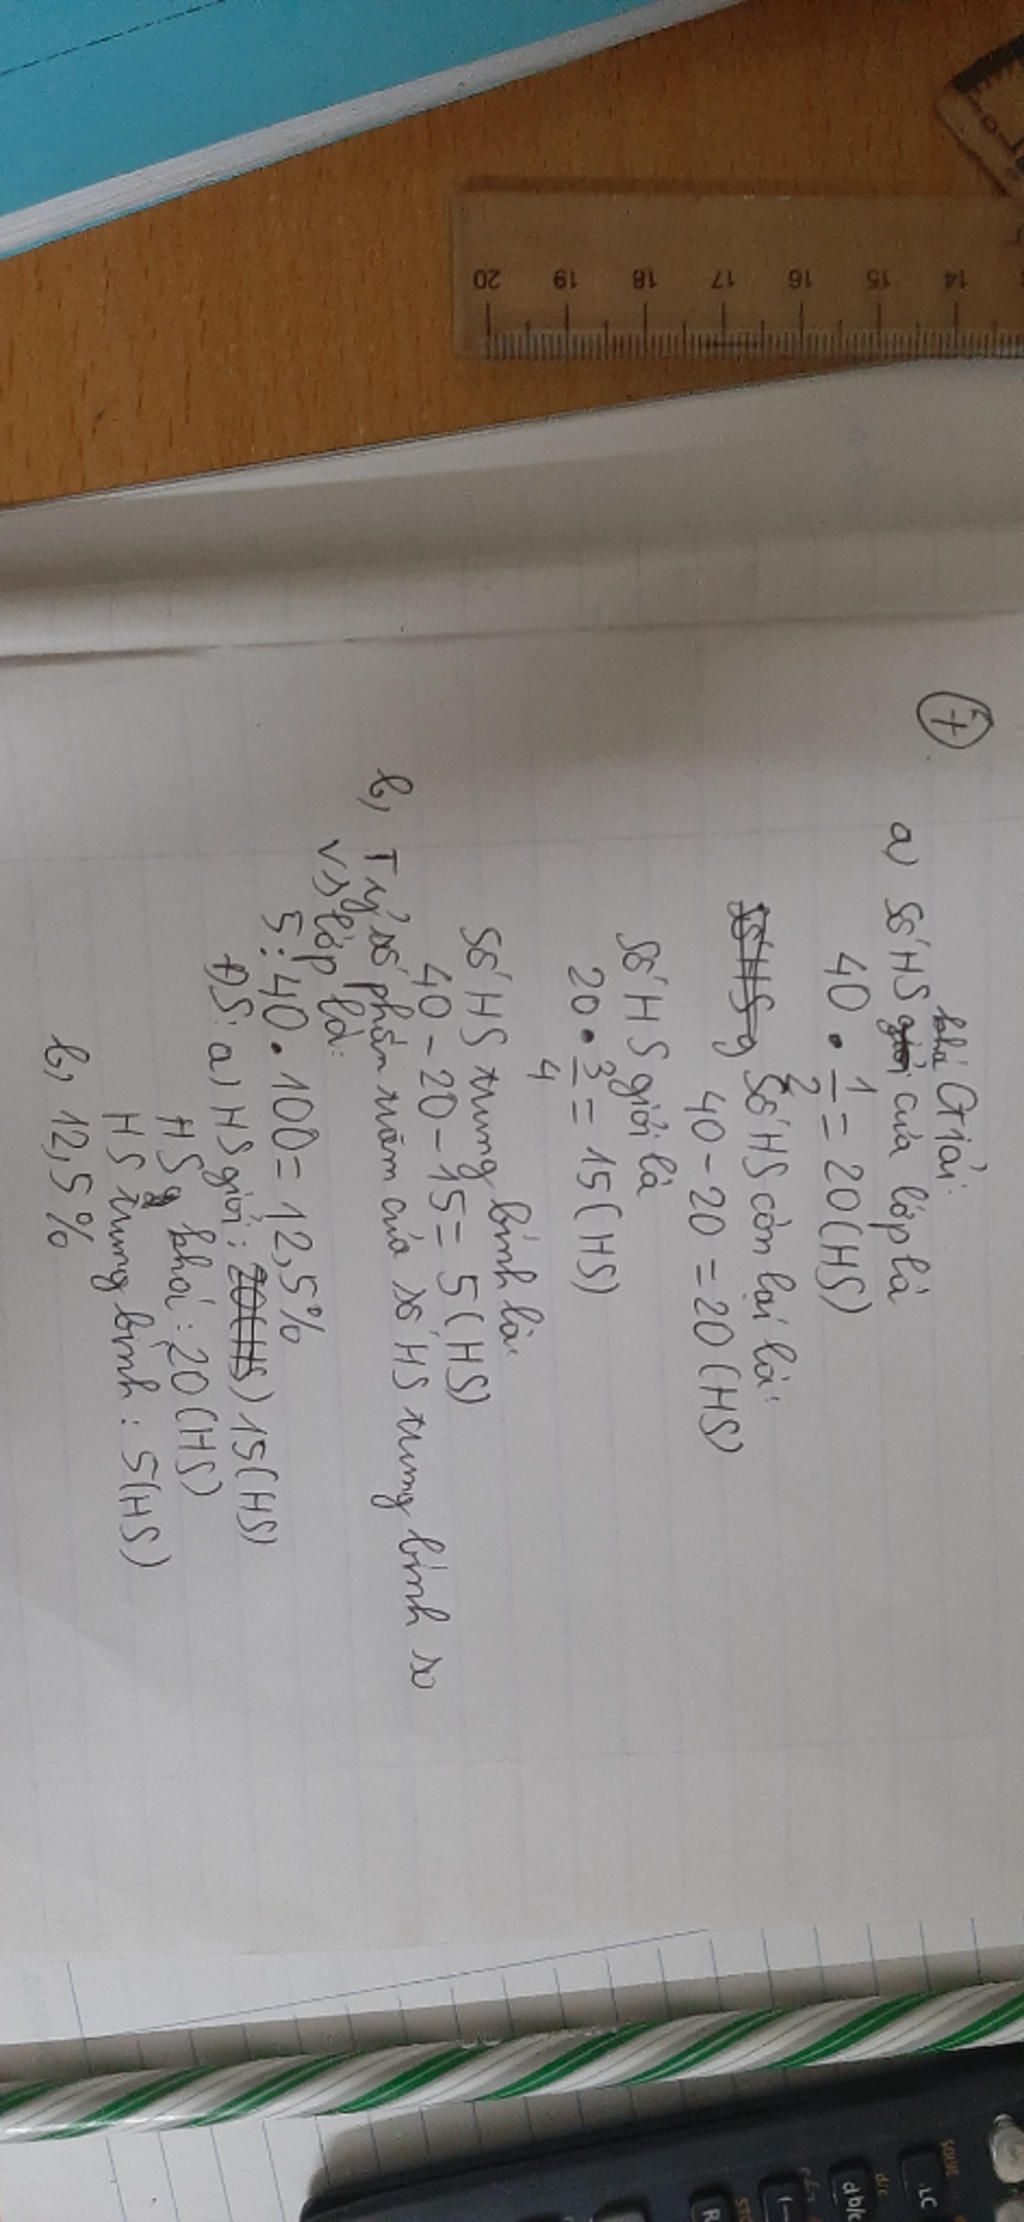 7
Giải:
a) Số HS khá của lớp là
40 . 1/2 = 20 (HS)
Số HS còn lại là:
40 - 20 = 20 (HS)
Số HS giỏi là
20 . 3/4 = 15 (HS)
Số HS trung bình là:
40 - 20 - 15 = 5 (HS)
b, Tỷ số phần trăm của số HS trung bình so
vs lớp là:
5 : 40 . 100 = 12,5%
ĐS: a) HS giỏi : 15 (HS)
HS khá : 20 (HS)
HS trung bình : 5 (HS)
b, 12,5%
20 19 18 17 16 15 14